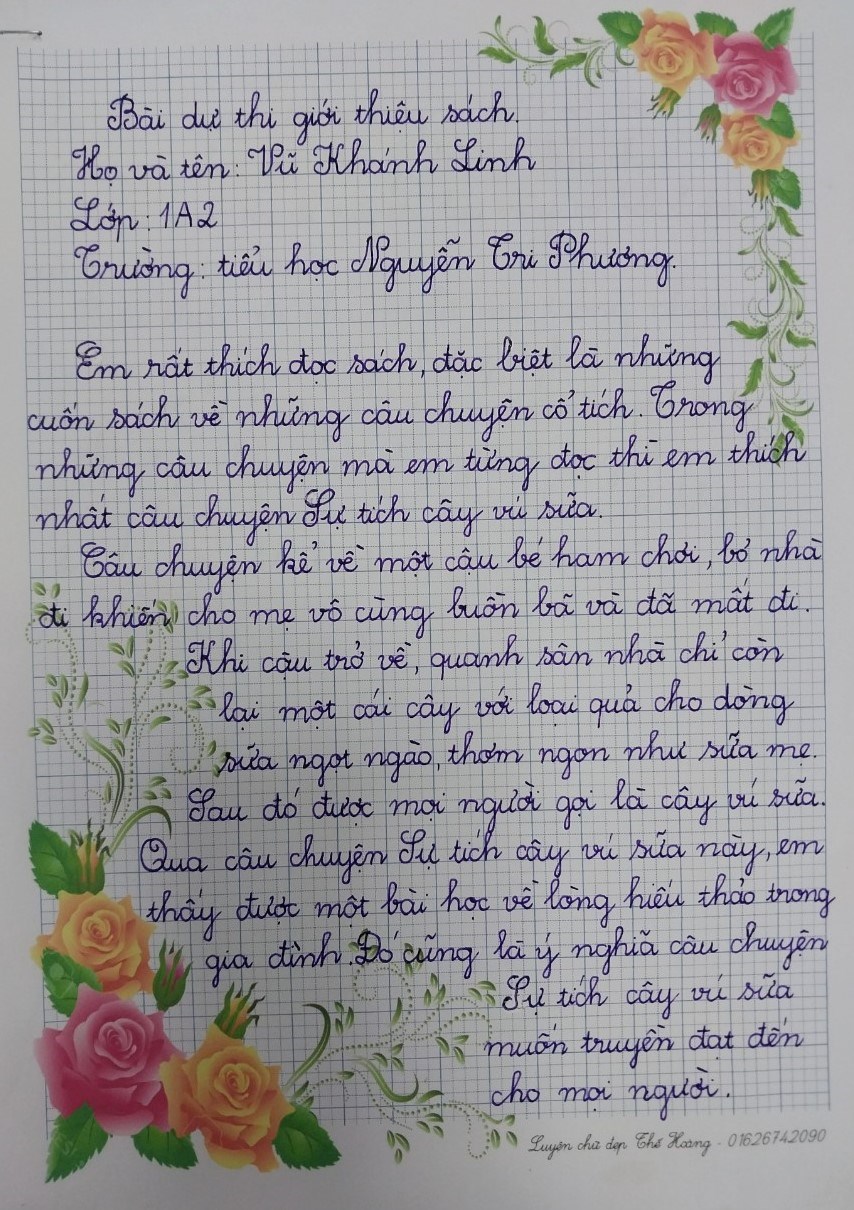 Bài dự thi giới thiệu sách.
Họ và tên: Vũ Khánh Linh
Lớp: 1A2
Trường: tiểu học Nguyễn Tri Phương.
Em rất thích đọc sách, đặc biệt là những
cuốn sách về những câu chuyện cổ tích. Trong
những câu chuyện mà em từng đọc thì em thích
nhất câu chuyện Sự tích cây vú sữa.
Câu chuyện kể về một cậu bé ham chơi, bỏ nhà
đi khiến cho mẹ vô cùng buồn bã và đã mất đi.
Khi cậu trở về, quanh sân nhà chỉ còn
lại một cái cây với loại quả cho dòng
sữa ngọt ngào, thơm ngon như sữa mẹ.
Sau đó được mọi người gọi là cây vú sữa.
Qua câu chuyện Sự tích cây vú sữa này, em
thấy được một bài học về lòng hiếu thảo trong
gia đình. Đó cũng là ý nghĩa câu chuyện
Sự tích cây vú sữa
muốn truyền đạt đến
cho mọi người.
Luyện chữ đẹp Thế Hoàng - 01626742090